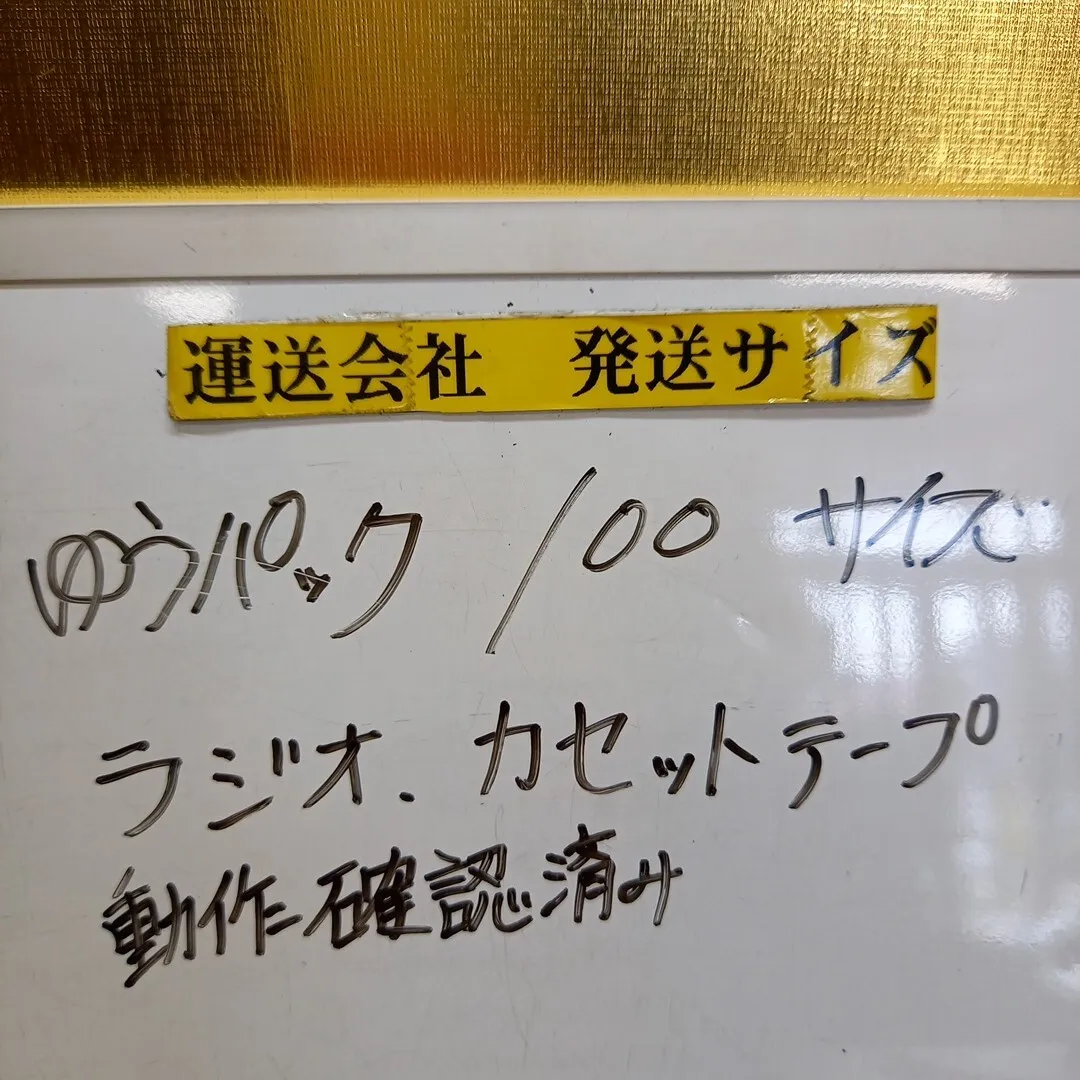 運送会社　発送サイズ
ゆうパック 100 サイズ
ラジオ、カセットテープ
動作確認済み